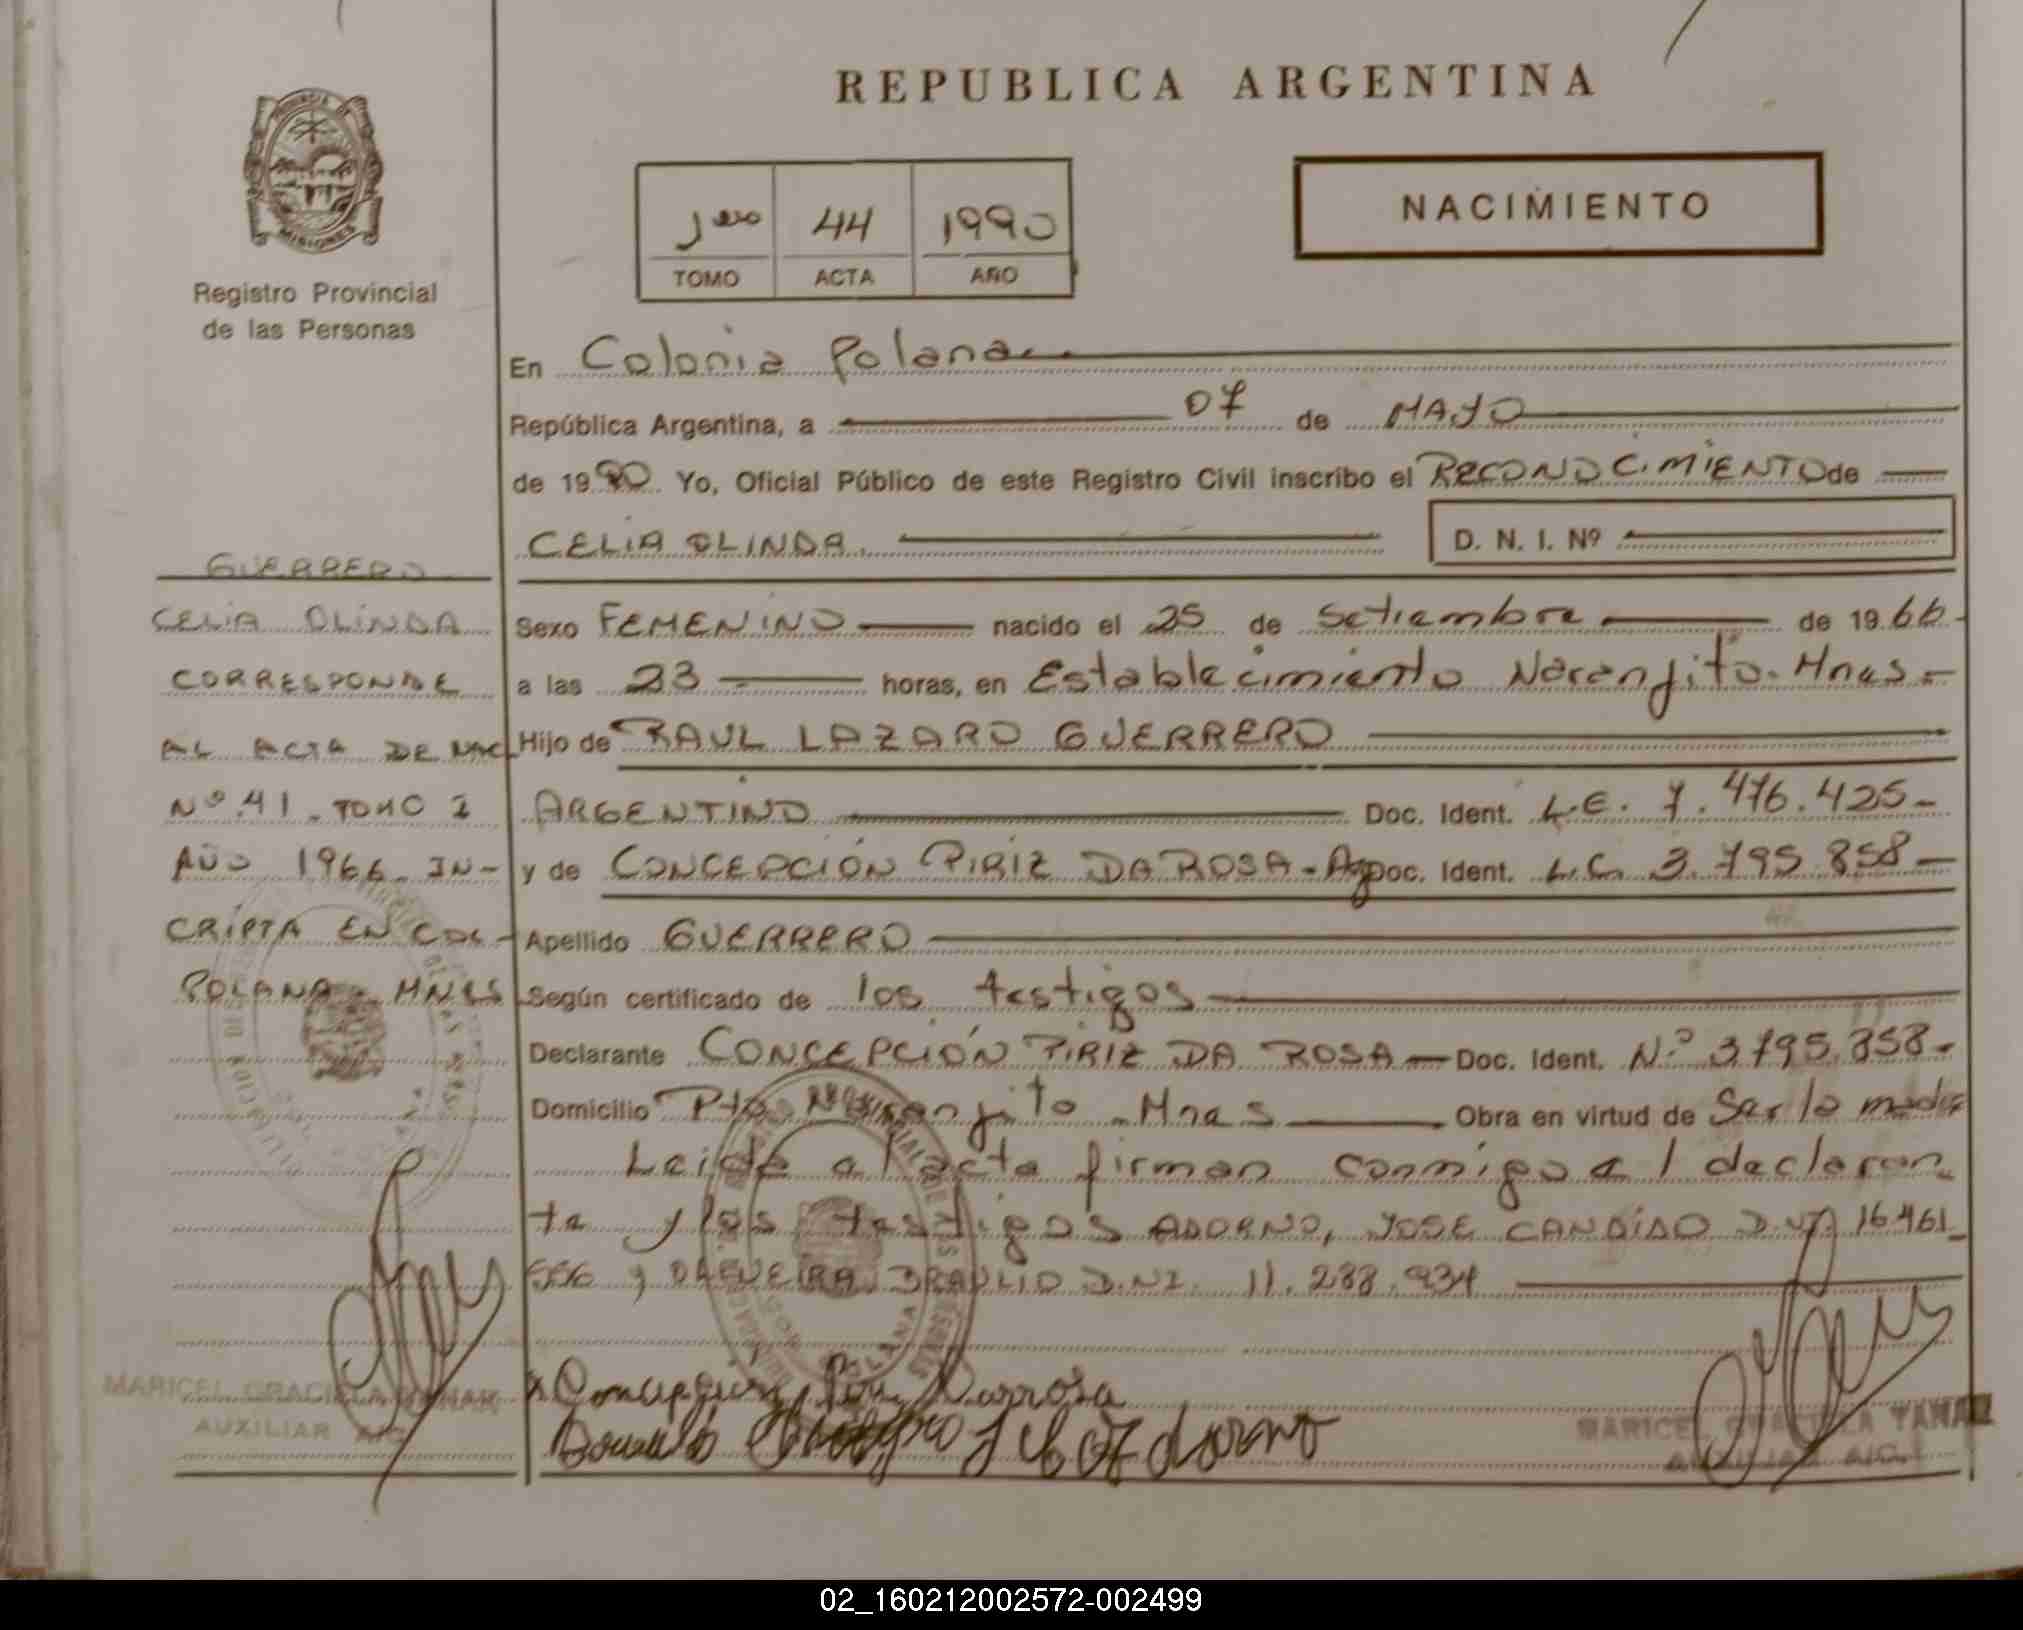 REPUBLICA ARGENTINA
PROVINCIA DE
MISIONES
Registro Provincial
de las Personas
1ero 44 1990
TOMO ACTA AÑO
NACIMIENTO
En Colonia Polana
República Argentina, a 07 de MAYO
de 1990 Yo, Oficial Público de este Registro Civil inscribo el RECONOCIMIENTO de
CELIA OLINDA. D. N. I. Nº
GUERRERO
CELIA OLINDA
CORRESPONDE
AL ACTA DE NAC
Nº 41. TOMO I
AÑO 1966. IN-
CRIPTA EN COL-
POLANA - MNES
Sexo FEMENINO nacido el 25 de Setiembre de 1966.
a las 23 horas, en Establecimiento Naranjito. Mnes-
Hijo de RAUL LAZARO GUERRERO
ARGENTINO Doc. Ident. L.E. 7.476.425-
y de CONCEPCIÓN PIRIZ DA ROSA - Ag Doc. Ident. L.C. 3.795.858-
Apellido GUERRERO
Según certificado de los testigos
Declarante CONCEPCIÓN PIRIZ DA ROSA - Doc. Ident. N.º 3795.858-
Domicilio Pto Naranjito - Mnes Obra en virtud de Ser la madre
Leida el acta firman conmigo el declaran
te y los testigos ADORNO, JOSE CANDIDO D.N.I 16.461_
556 y BRAULIO D.NI. 11.288.934
Concepcion Piri Darrosa
Adorno
MARICEL GRACIELA YANAK
AUXILIAR A/C
MARICEL GRACIELA YANAK
AUXILIAR A/C.
02_160212002572-002499